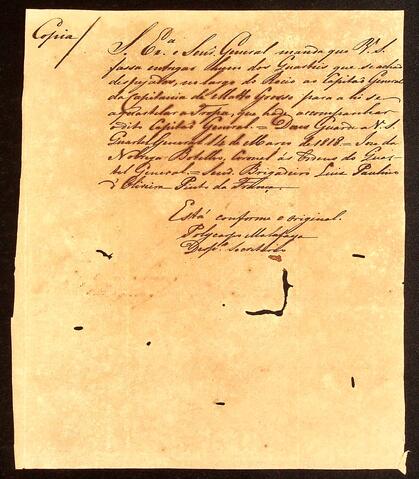 Copia
S. Ex.ª o Senr. General manda que V. S.
fassa entregar hum dos Quarteis que se achão
despejados, no largo do Rocio ao Capitão General
da Capitania de Matto Grosso para ahi se
aquartelar a Tropa, que hade acompanhar
o dito Capitão General. = Deus Guarde a V. S.
Quartel General 14 de Março de 1818. = Joze da
Nobrega Botelho, Coronel ás Ordens do Quar-
tel General. = Senr. Brigadeiro Luiz Paulino
d'Oliveira Pinto da França.
Está conforme o original.
Polycarpo Malafaya
Secretario